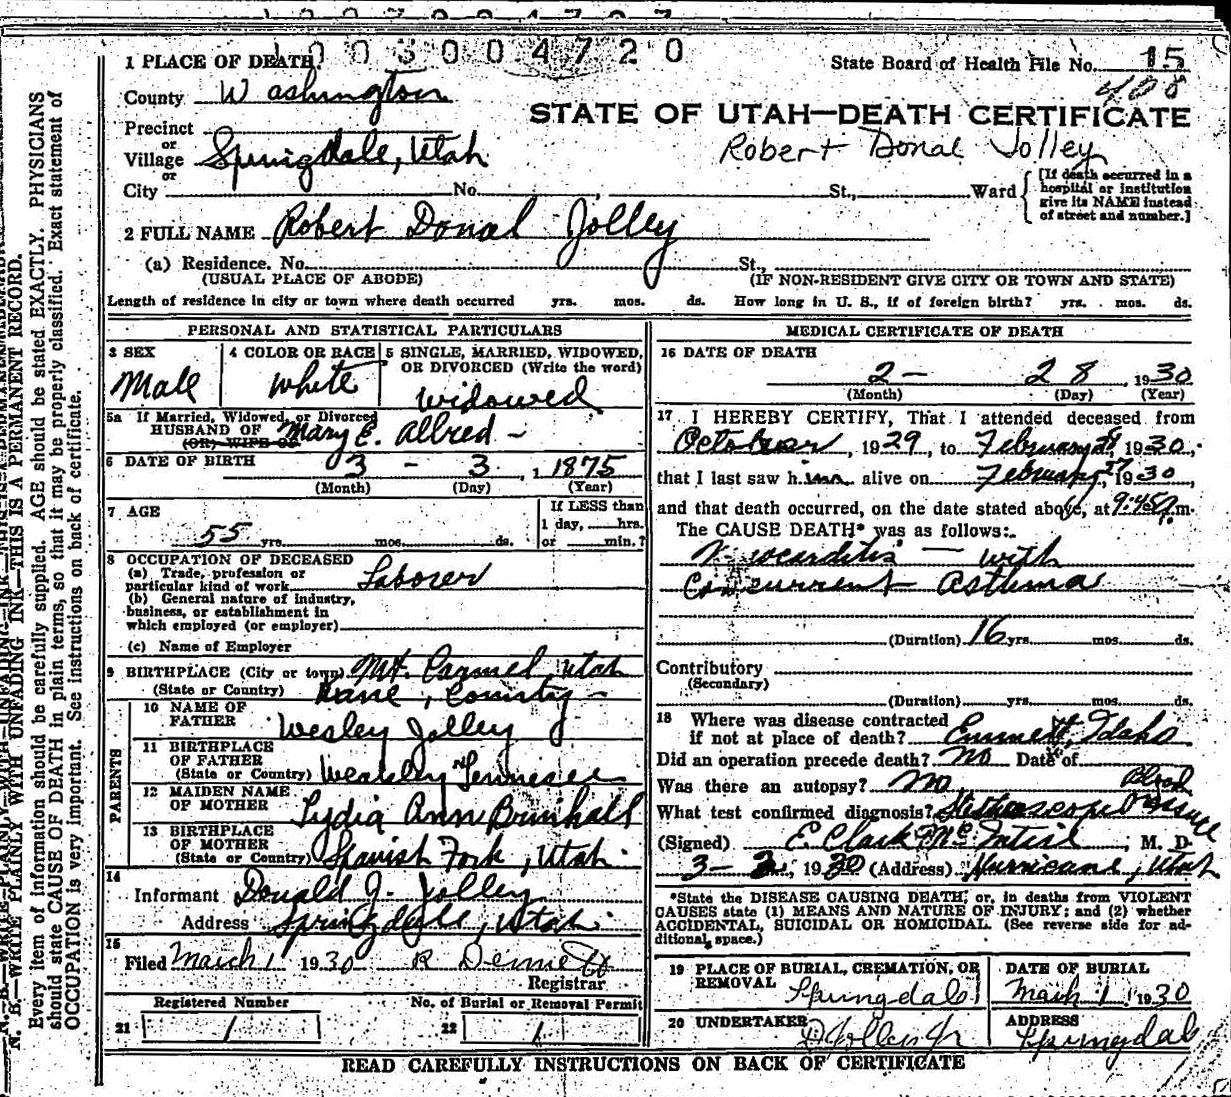 1003004720
1 PLACE OF DEATH
State Board of Health File No. 15
408
County Washington
STATE OF UTAH—DEATH CERTIFICATE
Precinct
or
Village Springdale, Utah
or
Robert Donal Jolley
City No. St., Ward
[If death occurred in a
hospital or institution
give its NAME instead
of street and number.]
2 FULL NAME Robert Donal Jolley
(a) Residence. No. St.,
(USUAL PLACE OF ABODE) (IF NON-RESIDENT GIVE CITY OR TOWN AND STATE)
Length of residence in city or town where death occurred yrs. mos. ds. How long in U. S., if of foreign birth? yrs. mos. ds.
PERSONAL AND STATISTICAL PARTICULARS
3 SEX
Male
4 COLOR OR RACE
White
5 SINGLE, MARRIED, WIDOWED,
OR DIVORCED (Write the word)
widowed
5a If Married, Widowed, or Divorced
HUSBAND OF Mary E. Allred -
(OR) WIFE OF
6 DATE OF BIRTH
3 - 3, 1875
(Month) (Day) (Year)
7 AGE
55 yrs. mos. ds.
If LESS than
1 day, hrs.
or min.?
8 OCCUPATION OF DECEASED
(a) Trade, profession or
particular kind of work Laborer
(b) General nature of industry,
business, or establishment in
which employed (or employer)
(c) Name of Employer
9 BIRTHPLACE (City or town) Mt. Carmel, Utah
(State or Country) Kane, County -
PARENTS
10 NAME OF
FATHER Wesley Jolley
11 BIRTHPLACE
OF FATHER
(State or Country) Weakley Tennissee
12 MAIDEN NAME
OF MOTHER Lydia Ann Brinhall
13 BIRTHPLACE
OF MOTHER
(State or Country) Spanish Fork, Utah.
14
Informant Donald J. Jolley
Address Springdale, Utah
15
Filed March 1 1930 R Dennett
Registrar
Registered Number No. of Burial or Removal Permit
21 1 22 1
MEDICAL CERTIFICATE OF DEATH
16 DATE OF DEATH
2 - 28, 1930
(Month) (Day) (Year)
17 I HEREBY CERTIFY, That I attended deceased from
October, 1929, to February 28 1930,
that I last saw him alive on February 27, 1930,
and that death occurred, on the date stated above, at 9:45 P.m.
The CAUSE DEATH* was as follows:
Myocarditis — with
Concurrent Asthma
(Duration) 16 yrs. mos. ds.
Contributory
(Secondary)
(Duration) yrs. mos. ds.
18 Where was disease contracted
if not at place of death? Emmett, Idaho
Did an operation precede death? No Date of
Was there an autopsy? No
What test confirmed diagnosis? Stethoscopic Blood pressure
(Signed) E. Clark McIntire, M. D.
3 - 2, 1930 (Address) Hurricane, Utah
*State the DISEASE CAUSING DEATH, or, in deaths from VIOLENT
CAUSES state (1) MEANS AND NATURE OF INJURY; and (2) whether
ACCIDENTAL, SUICIDAL OR HOMICIDAL. (See reverse side for ad-
ditional space.)
19 PLACE OF BURIAL, CREMATION, OR
REMOVAL Springdale
DATE OF BURIAL
March 1 1930
20 UNDERTAKER
D Jolley Jr
ADDRESS
Springdale
READ CAREFULLY INSTRUCTIONS ON BACK OF CERTIFICATE
N. B.—WRITE PLAINLY WITH UNFADING INK—THIS IS A PERMANENT RECORD.
Every item of information should be carefully supplied. AGE should be stated EXACTLY. PHYSICIANS
should state CAUSE OF DEATH in plain terms, so that it may be properly classified. Exact statement of
OCCUPATION is very important. See instructions on back of certificate.